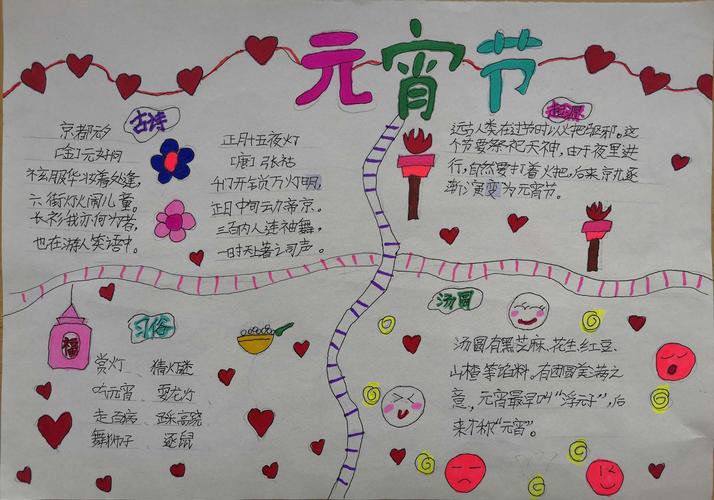 元宵节
古诗
京都元夕
[金]元好问
袨服华妆着处逢,
六街灯火闹儿童。
长衫我亦何为者,
也在游人笑语中。
正月十五夜灯
[唐]张祜
千门开锁万灯明,
正月中旬动帝京。
三百内人连袖舞,
一时天上著之词声。
起源
远古人类在过节时以火把驱邪。这
个节要祭祀天神,由于夜里进
行,自然要打着火把,后来就逐
渐演变为元宵节。
习俗
福
赏灯 猜灯谜
吃元宵 耍龙灯
走百病 踩高跷
舞狮子 逐鼠
汤圆
汤圆有黑芝麻、花生、红豆、
山楂等馅料。有团圆美满之
意,元宵最早叫“浮元子”,后
来才称“元宵”。